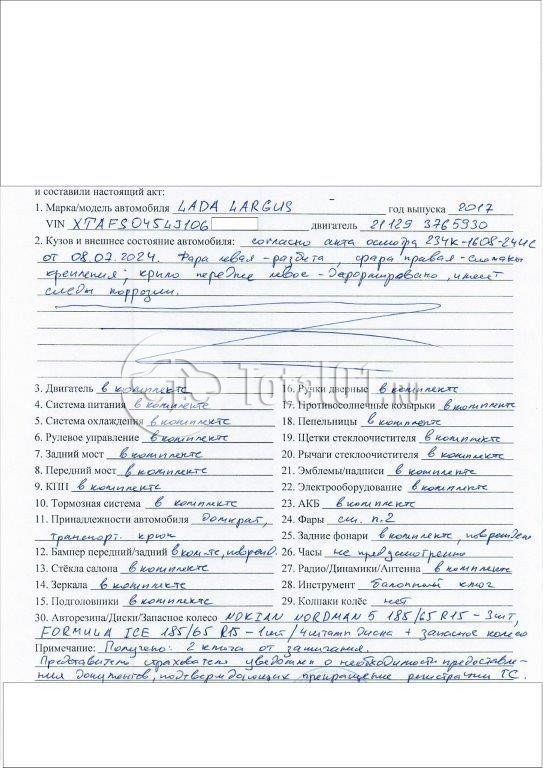 и составили настоящий акт:
1. Марка/модель автомобиля LADA LARGUS год выпуска 2017
VIN XTAFS045LJ106 двигатель 21129 3765930
2. Кузов и внешнее состояние автомобиля: согласно акта осмотра
от 08.07.2024. Фара левая - разбита, фара правая - сломаны
крепления; крыло переднее левое - деформировано, имеет
следы коррозии.
3. Двигатель в комплекте
4. Система питания в комплекте
5. Система охлаждения в комплекте
6. Рулевое управление в комплекте
7. Задний мост в комплекте
8. Передний мост в комплекте
9. КПП в комплекте
10. Тормозная система в комплекте
11. Принадлежности автомобиля домкрат,
транспорт. крюк
12. Бампер передний/задний в ком-те, поврежд.
13. Стёкла салона в комплекте
14. Зеркала в комплекте
15. Подголовники в комплекте
16. Ручки дверные в комплекте
17. Противосолнечные козырьки в комплекте
18. Пепельницы в комплекте
19. Щетки стеклоочистителя в комплекте
20. Рычаги стеклоочистителя в комплекте
21. Эмблемы/надписи в комплекте
22. Электрооборудование в комплекте
23. АКБ в комплекте
24. Фары см. п.2
25. Задние фонари в комплекте, поврежден
26. Часы не предусмотрено
27. Радио/Динамики/Антенна в комплекте
28. Инструмент балонный ключ
29. Колпаки колёс нет
30. Авторезина/Диски/Запасное колесо NOKIAN NORDMAN 5 185/65 R15 - 3шт,
FORMULA ICE 185/65 R15 - 1шт / 4 штамп диска + запасное колесо
Примечание: Получено: 2 ключа от зажигания.
Представитель страхователя уведомлен о необходимости предоставле-
ния документов, подтверждающих прекращение регистрации ТС.
Total01.RU